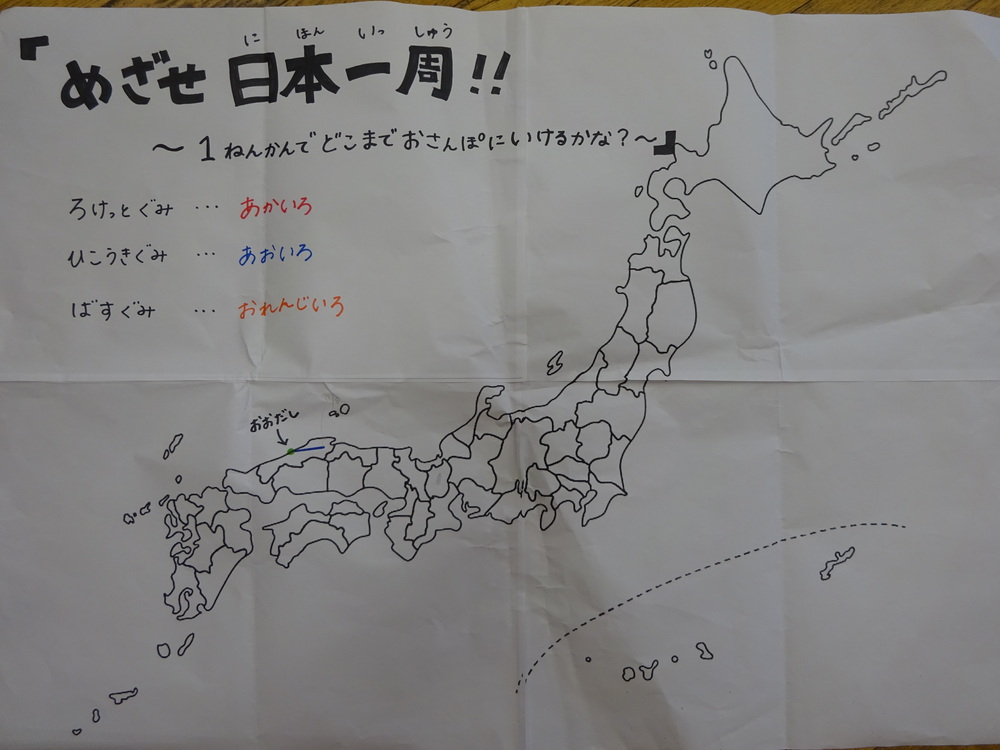 「めざせ 日本一周!!
に ほん いっ しゅう
～ 1ねんかんで どこまで おさんぽに いけるかな?～」
ろけっとぐみ … あかいろ
ひこうきぐみ … あおいろ
ばすぐみ … おれんじいろ
おおだし